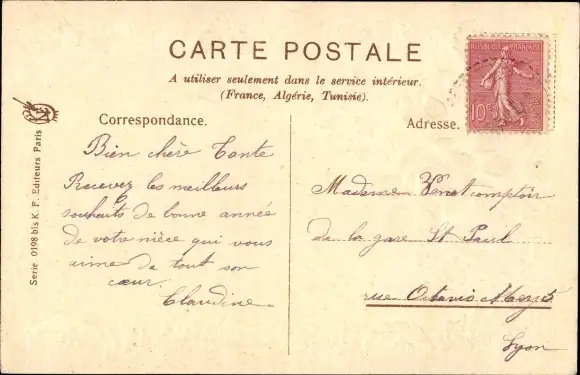 CARTE POSTALE
A utiliser seulement dans le service intérieur.
(France, Algérie, Tunisie).
REPUBLIQUE FRANÇAISE
10c
Correspondance.
Adresse.
Bien chère Tante
Recevez les meilleurs
souhaits de bonne année
de votre nièce qui vous
aime de tout son
cœur.
Claudine
Madame comptoir
de la gare St Paul
rue Octavio Mey 5
Lyon
Serie 0198 bis K. F. Editeurs Paris